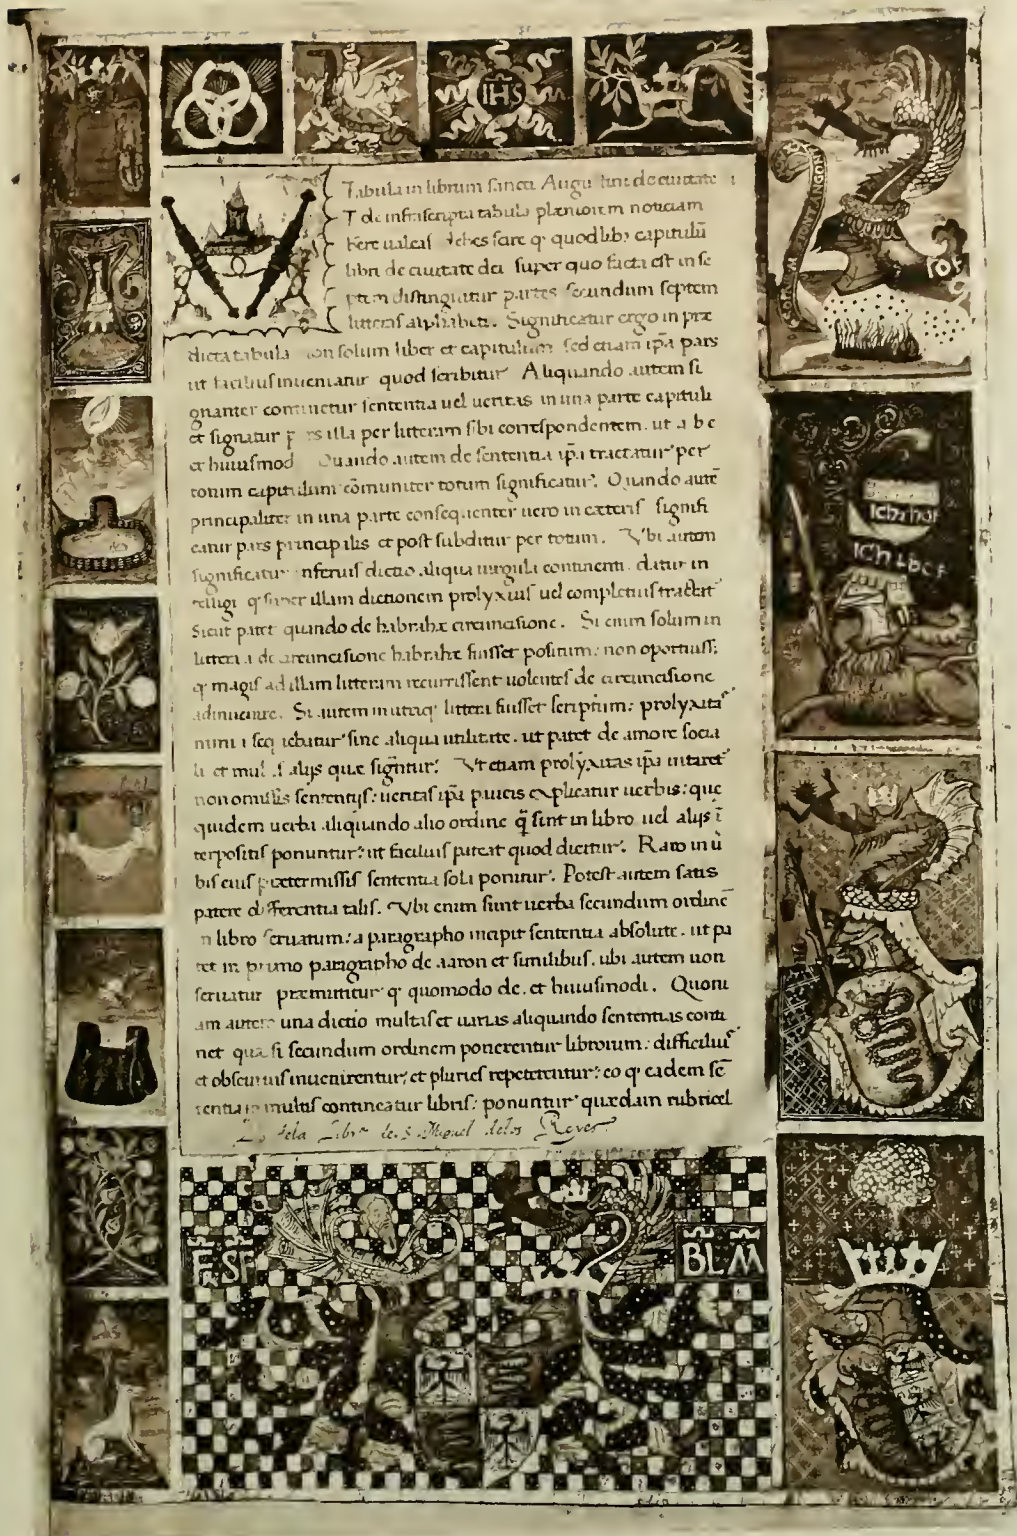 IHS
Tabula in librum sancti Augustini de ciuitate
T de infrascripta tabula plæniorem noticiam
here ualeas debes scire q' quodlib; capitulū
libri de ciuitate dei super quo facta est in se
ptem distinguatur partes secundum septem
litteras alphabeti. Significatur ergo in præ
dicta tabula non solum liber et capitulum sed etiam ip̄a pars
ut facilius inueniatur quod scribitur Aliquando autem si
gnanter continetur sententia uel ueritas in una parte capituli
et signatur pars illa per litteram sibi correspondentem. ut a b c
et huiusmod Quando autem de sententia ip̄a tractatur per
totum capitulum cōmuniter totum significatur. Quando autē
principaliter in una parte consequenter uero in cæteris signifi
catur pars principalis et post subditur per totum. Vbi autem
significatur inferius dictio aliqua uirgula continenti datur in
telligi q' super illam dictionem prolyxius uel completius tractat
Sicut patet quando de habrahæ circuncisione. Si enim solum in
littera i de circuncisione habrahæ fuisset positum: non oportuiss;
q' magis ad illam litteram recurrissent uolentes de circuncisione
adinuenire. Si autem in utraq' littera fuisset scriptum: prolyxitas
nimia sequebatur sine aliqua utilitate. ut patet de amore socia
li et mul alijs quæ signtur. Vt etiam prolyxitas ip̄a uitaret
non omissis sententijs: ueritas ip̄a paucis explicatur uerbis: que
quidem uerba aliquando alio ordine q̄ sint in libro uel alijs ī
terpositis ponuntur: ut facilius pateat quod dicitur. Raro in ū
bis eius prætermissis sententia soli ponitur. Potest autem satis
patere differentia talis. Vbi enim sunt uerba secundum ordinē
in libro seruatum: a paragrapho incipit sententia absolute. ut pa
tet in primo paragrapho de aaron et similibus. ubi autem non
seruatur præmittitur q' quomodo de. et huiusmodi. Quoni
am autem una dictio multas et uarias aliquando sententias conti
net quæ si secundum ordinem ponerentur librorum: difficilius
et obscurius inuenirentur: et pluries repeterentur: eo q' eadem sē
tentia in multis contineatur libris: ponuntur quædam rubricel
Es dela Libr.ª de S. Miguel delos Reyes
ich hor
ich liber
F SF
BL M